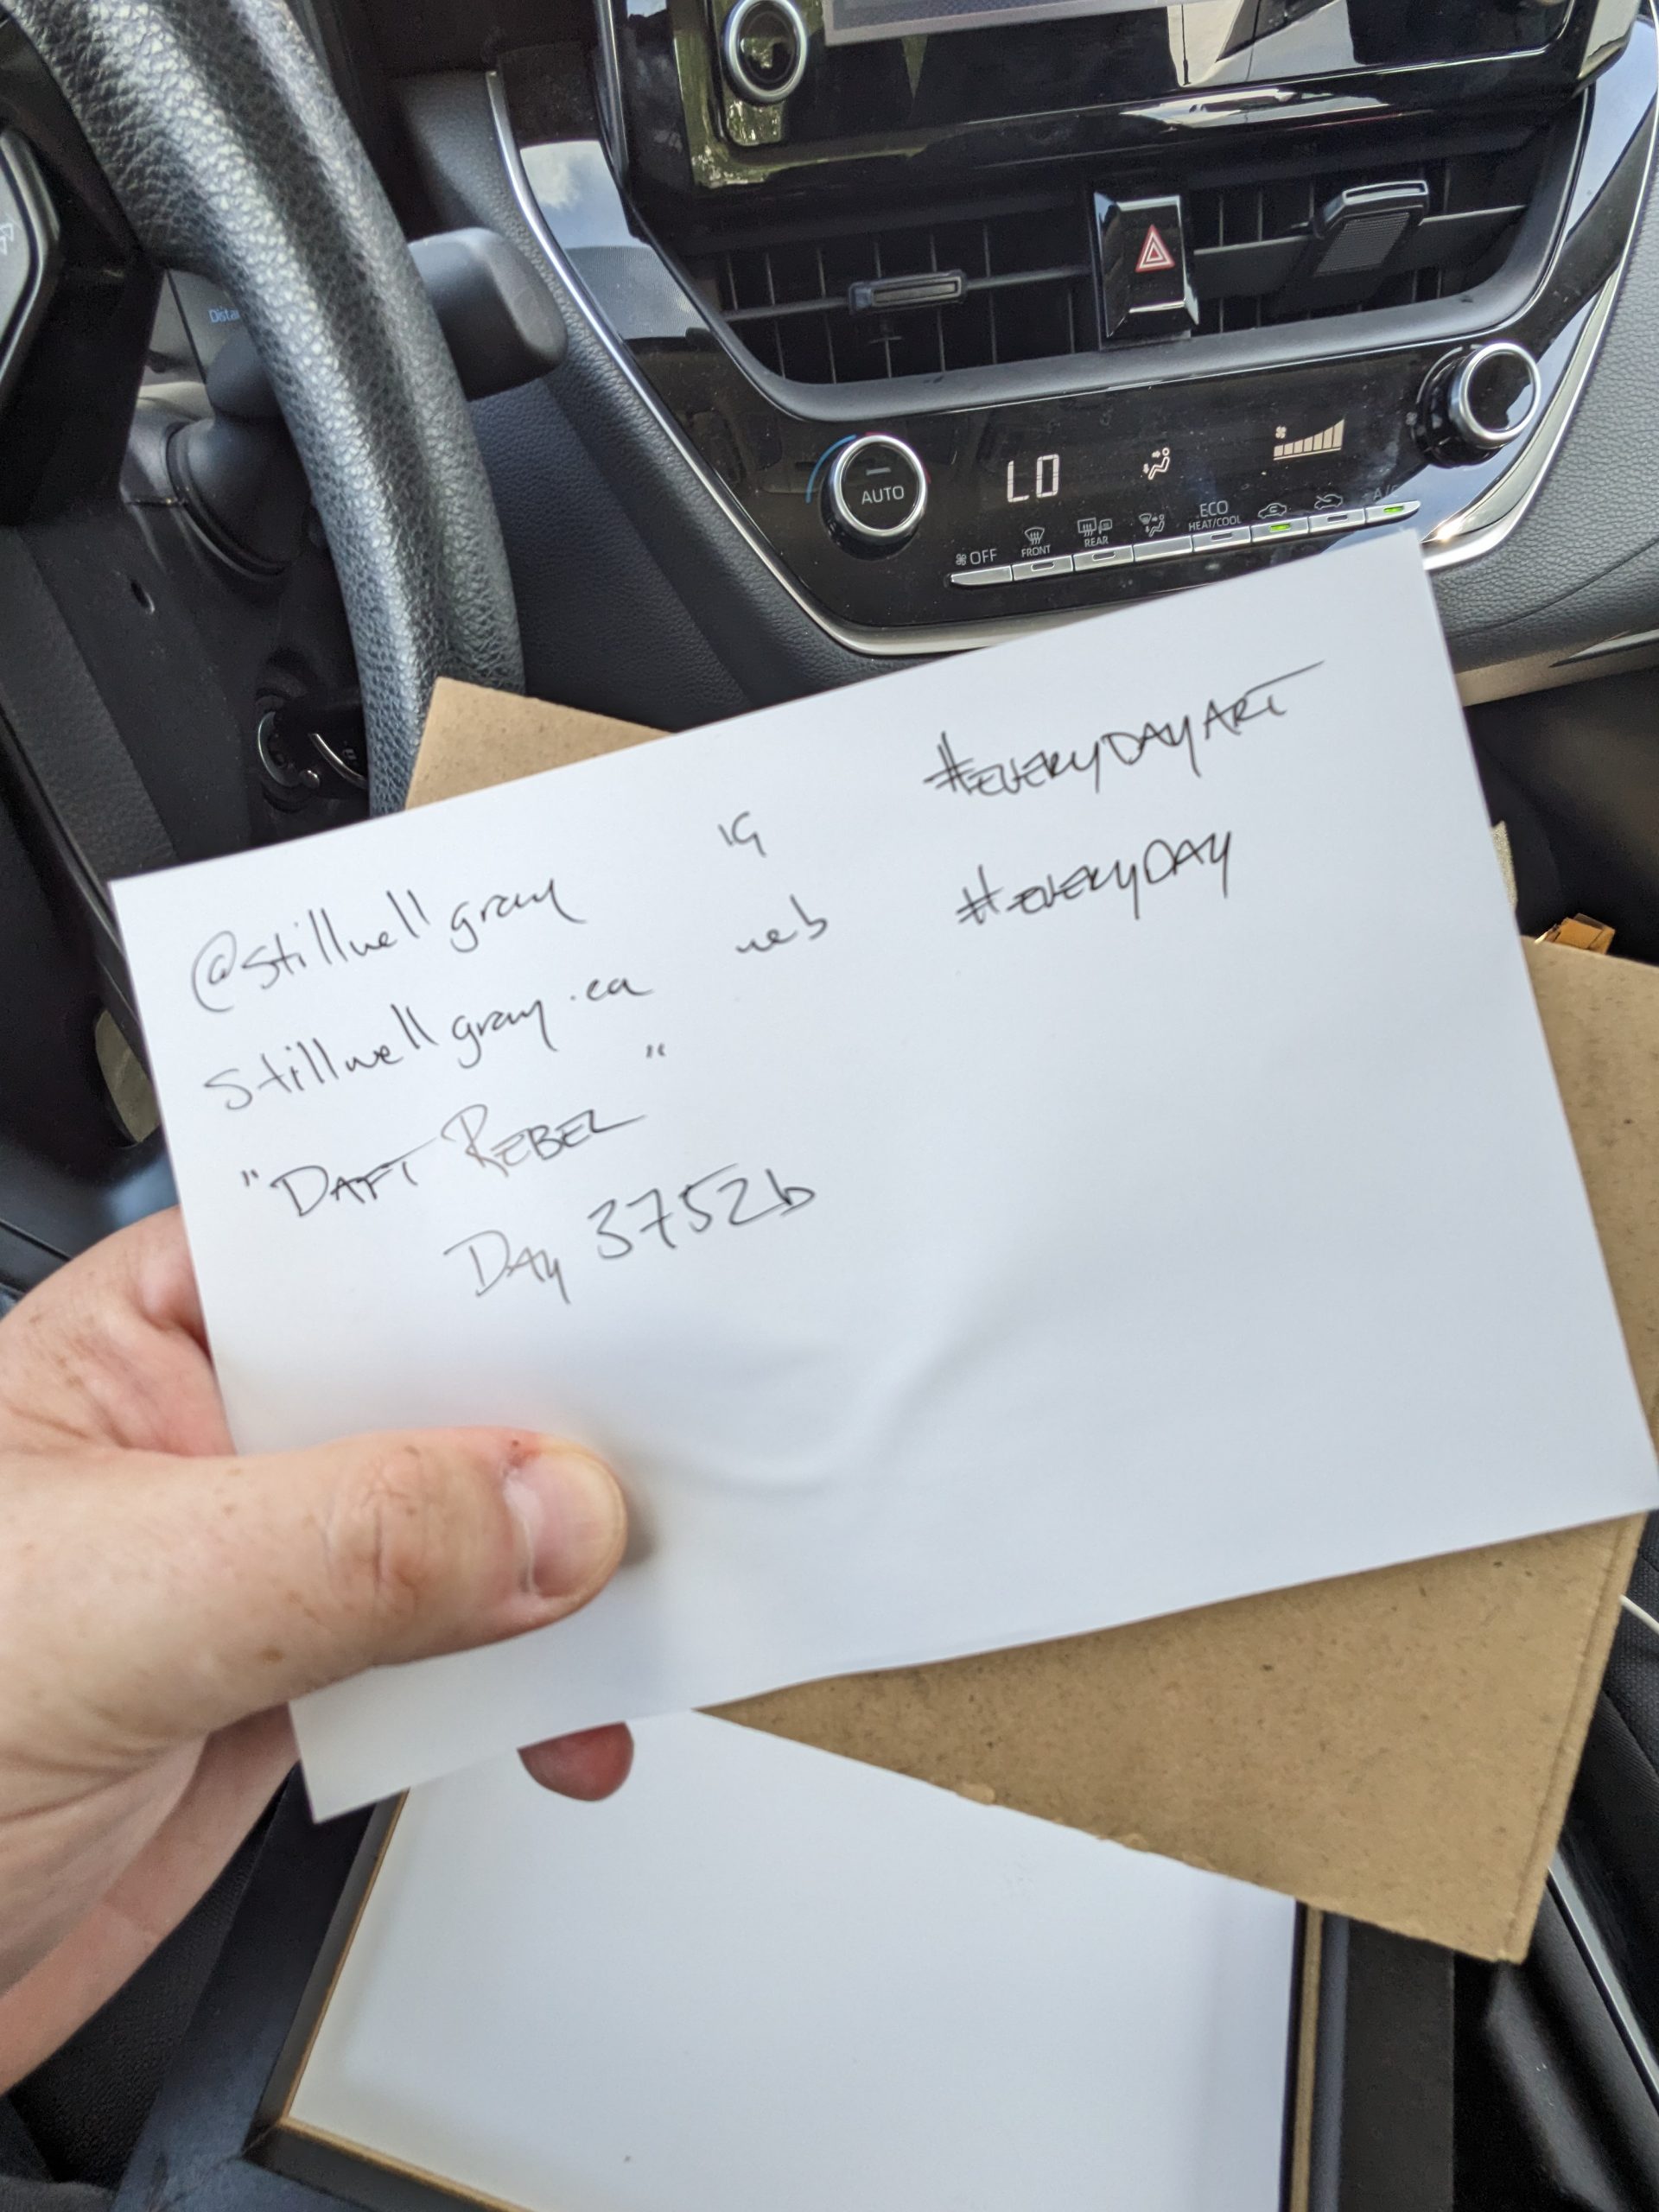 Dista
AUTO
LO
OFF
FRONT
REAR
ECO
HEAT/COOL
A/C
@stillwellgray IG #EVERYDAYART
stillwellgray.ca web #EVERYDAY
"DAFT REBEL"
DAY 3752b